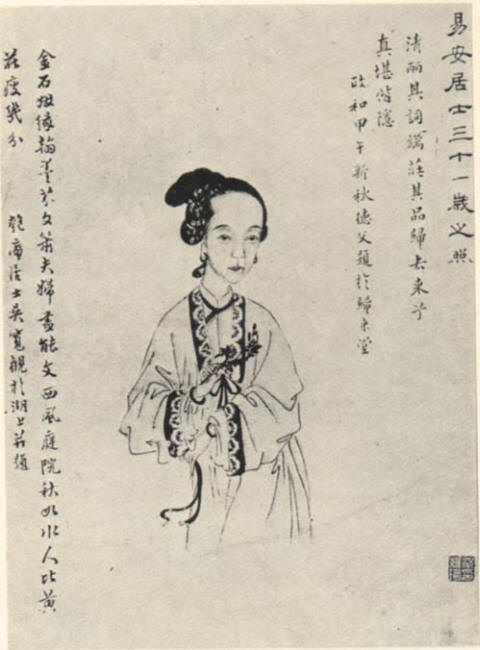 易安居士三十一歲之照
清麗其詞端莊其品歸去來兮
真堪偕隱
政和甲午新秋德父題於歸來堂
金石姻緣翰墨芬文簫夫婦盡能文西風庭院秋如水人比黃
花瘦幾分
匏庵居士吳寬觀於湖上並題